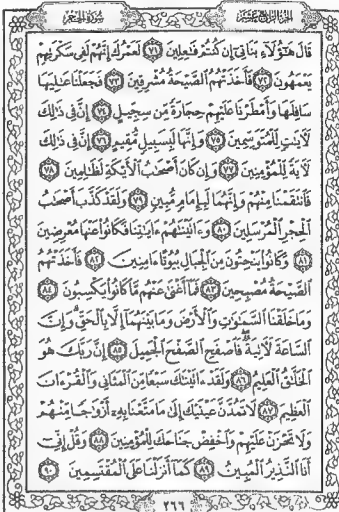 الجزء الرابع عشر
سورة الحجر
قَالَ هَٰٓؤُلَآءِ بَنَاتِيٓ إِن كُنتُمْ فَٰعِلِينَ ٧١ لَعَمْرُكَ إِنَّهُمْ لَفِي سَكْرَتِهِمْ
يَعْمَهُونَ ٧٢ فَأَخَذَتْهُمُ ٱلصَّيْحَةُ مُشْرِقِينَ ٧٣ فَجَعَلْنَا عَٰلِيَهَا
سَافِلَهَا وَأَمْطَرْنَا عَلَيْهِمْ حِجَارَةً مِّن سِجِّيلٍ ٧٤ إِنَّ فِي ذَٰلِكَ
لَءَايَٰتٍ لِّلْمُتَوَسِّمِينَ ٧٥ وَإِنَّهَا لَبِسَبِيلٍ مُّقِيمٍ ٧٦ إِنَّ فِي ذَٰلِكَ
لَءَايَةً لِّلْمُؤْمِنِينَ ٧٧ وَإِن كَانَ أَصْحَٰبُ ٱلْأَيْكَةِ لَظَٰلِمِينَ ٧٨
فَٱنتَقَمْنَا مِنْهُمْ وَإِنَّهُمَا لَبِإِمَامٍ مُّبِينٍ ٧٩ وَلَقَدْ كَذَّبَ أَصْحَٰبُ
ٱلْحِجْرِ ٱلْمُرْسَلِينَ ٨٠ وَءَاتَيْنَٰهُمْ ءَايَٰتِنَا فَكَانُوا۟ عَنْهَا مُعْرِضِينَ
٨١ وَكَانُوا۟ يَنْحِتُونَ مِنَ ٱلْجِبَالِ بُيُوتًا ءَامِنِينَ ٨٢ فَأَخَذَتْهُمُ
ٱلصَّيْحَةُ مُصْبِحِينَ ٨٣ فَمَآ أَغْنَىٰ عَنْهُم مَّا كَانُوا۟ يَكْسِبُونَ ٨٤
وَمَا خَلَقْنَا ٱلسَّمَٰوَٰتِ وَٱلْأَرْضَ وَمَا بَيْنَهُمَآ إِلَّا بِٱلْحَقِّ وَإِنَّ
ٱلسَّاعَةَ لَءَاتِيَةٌ فَٱصْفَحِ ٱلصَّفْحَ ٱلْجَمِيلَ ٨٥ إِنَّ رَبَّكَ هُوَ
ٱلْخَلَّٰقُ ٱلْعَلِيمُ ٨٦ وَلَقَدْ ءَاتَيْنَٰكَ سَبْعًا مِّنَ ٱلْمَثَانِي وَٱلْقُرْءَانَ
ٱلْعَظِيمَ ٨٧ لَا تَمُدَّنَّ عَيْنَيْكَ إِلَىٰ مَا مَتَّعْنَا بِهِۦٓ أَزْوَٰجًا مِّنْهُمْ
وَلَا تَحْزَنْ عَلَيْهِمْ وَٱخْفِضْ جَنَاحَكَ لِلْمُؤْمِنِينَ ٨٨ وَقُلْ إِنِّيٓ
أَنَا ٱلنَّذِيرُ ٱلْمُبِينُ ٨٩ كَمَآ أَنزَلْنَا عَلَى ٱلْمُقْتَسِمِينَ ٩٠
٢٦٦